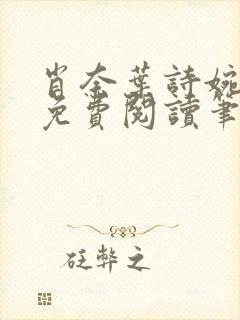 肖奈葉詩婉
免費閱讀筆
砡弊之